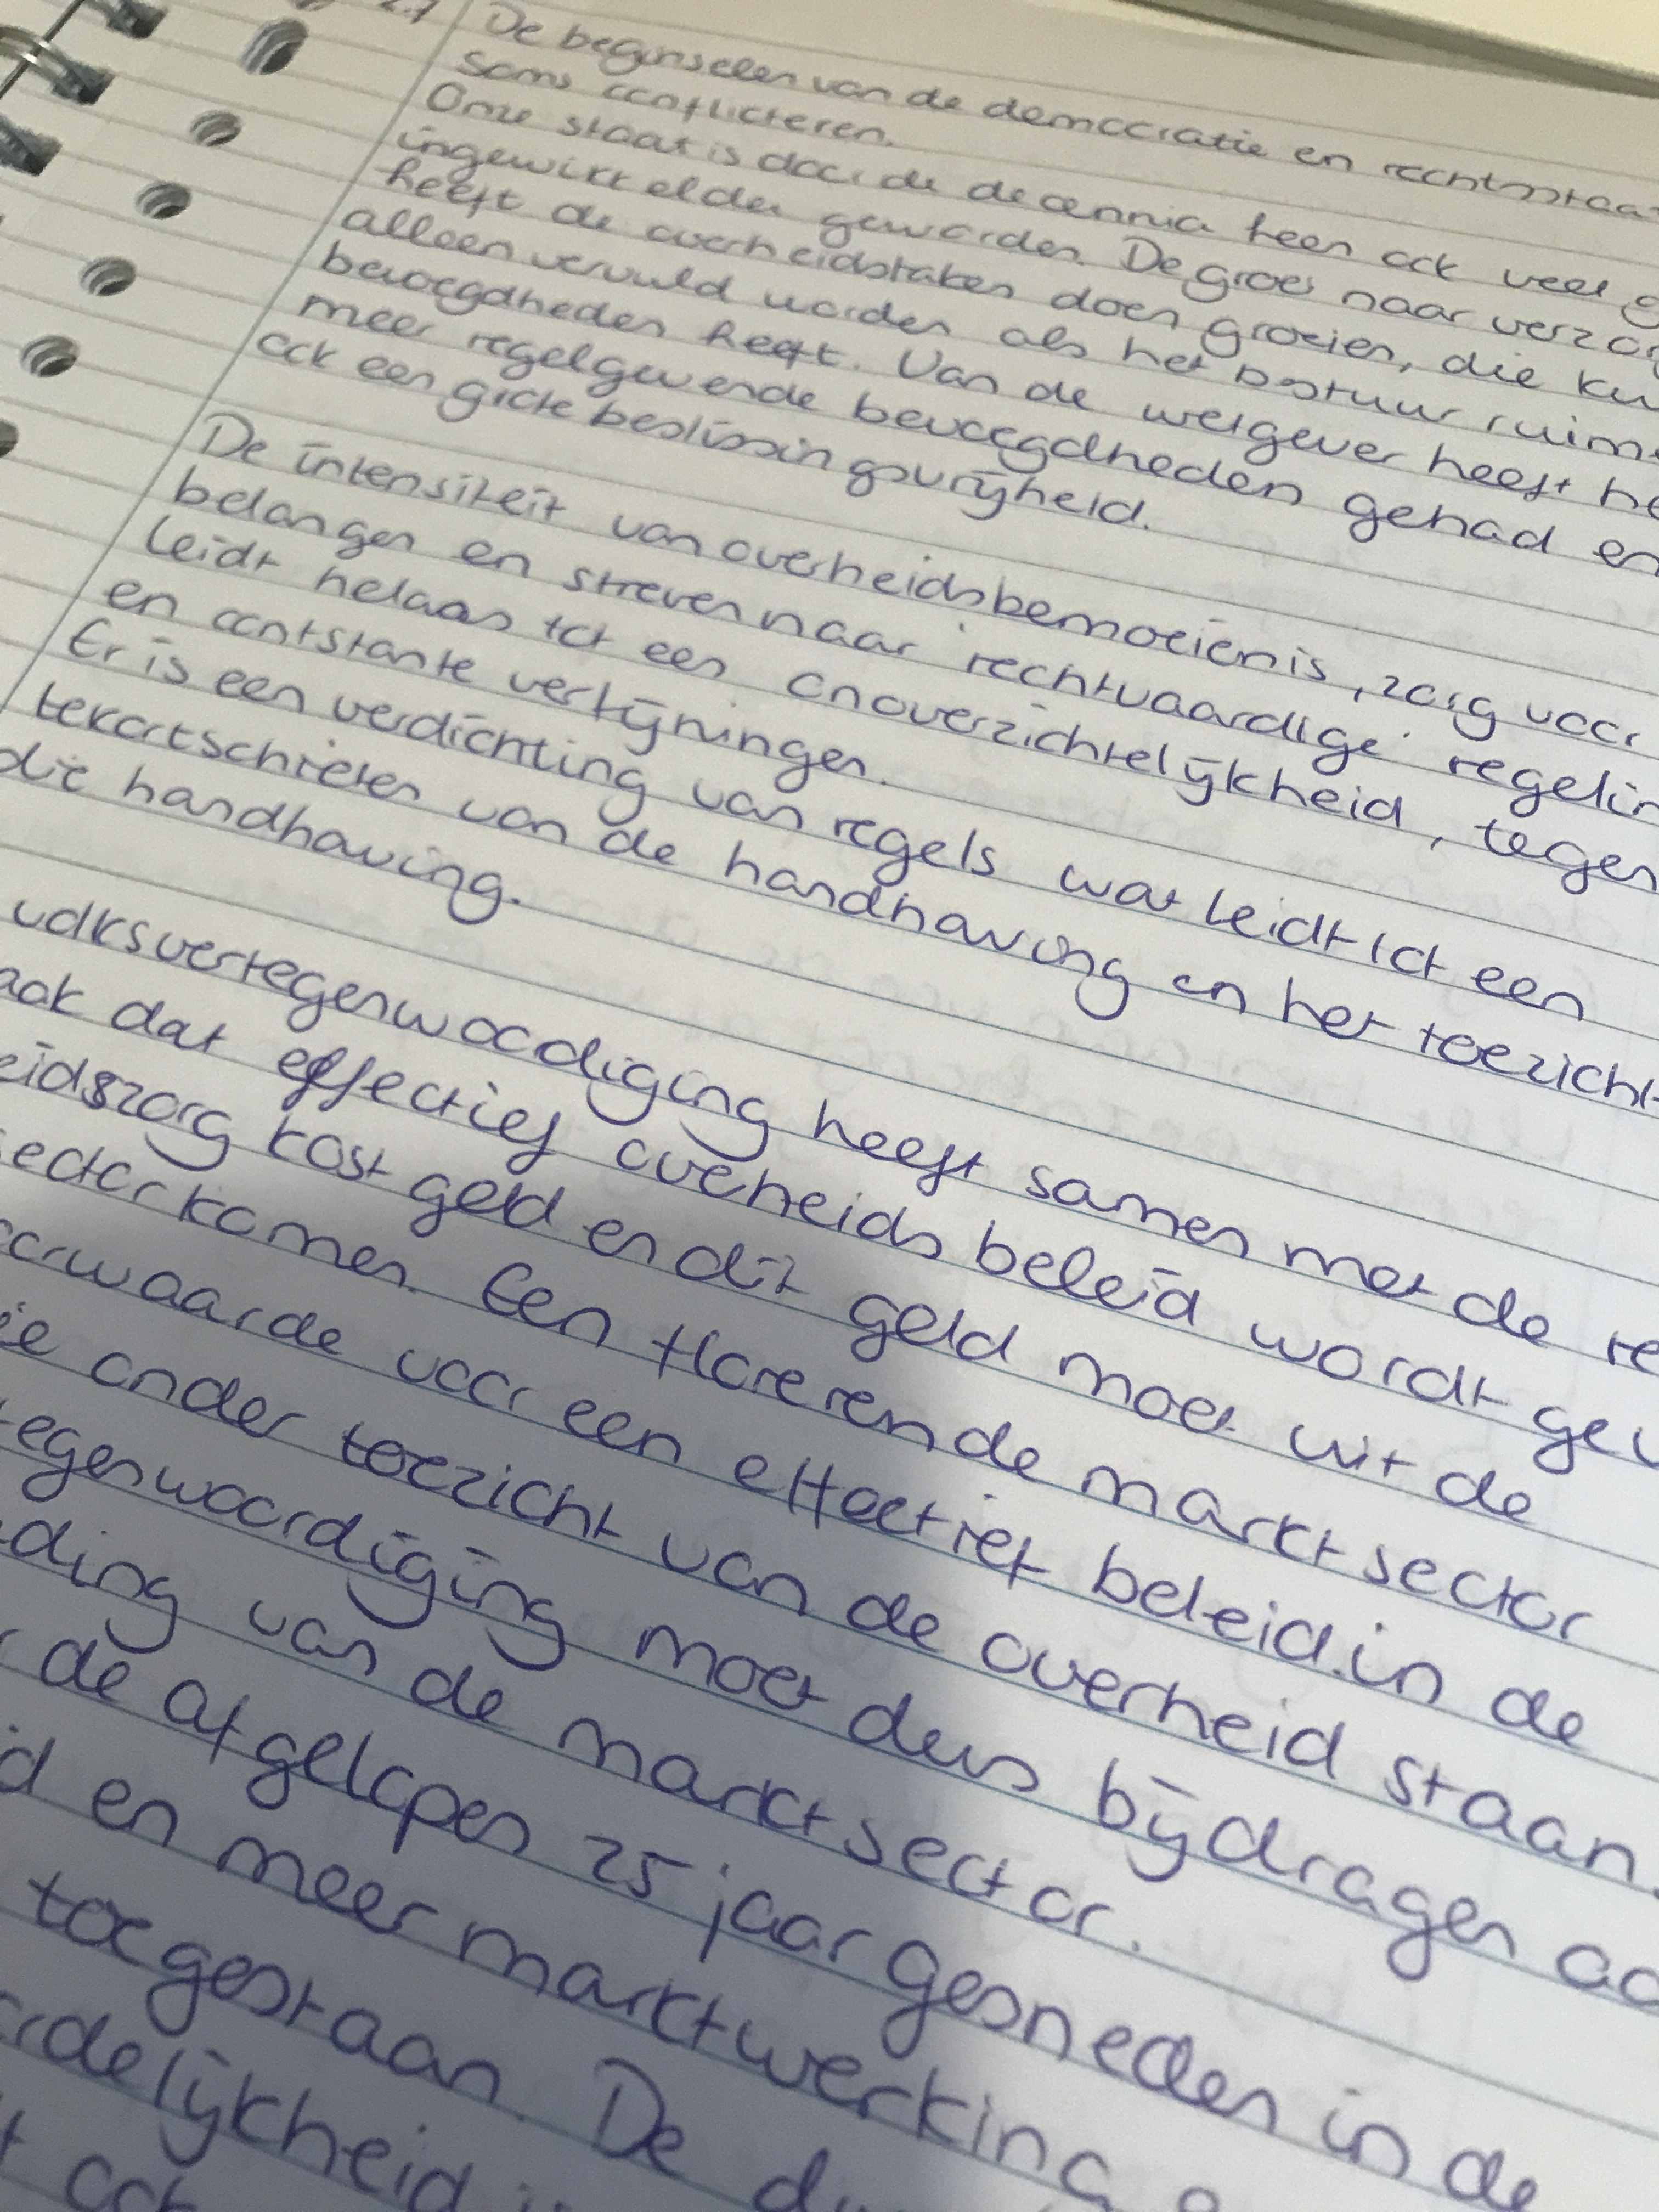 2.7
De beginselen van de democratie en rechtsstaat
soms conflicteren.
Onze staat is door de decennia heen ook veel
ingewikkelder geworden. De groei naar verzor
heeft de overheidstaken doen groeien, die ku
alleen vervuld worden als het bstuur ruim
bevoegdheden heeft. Van de wetgever heeft he
meer regelgevende bevoegdheden gehad en
ook een grote beslissingsvrijheid.
De intensiteit van overheidsbemoeienis, zorg voor
belangen en streven naar 'rechtvaardige' regelin
leidt helaas tot een onoverzichtelijkheid, tegen
en contstante verfijningen.
Er is een verdichting van regels wat leidt tot een
tekortschieten van de handhaving en het toezicht
die handhaving.
volksvertegenwoordiging heeft samen met de re
aak dat effectief overheidsbeleid wordt gev
eidszorg kost geld en dit geld moet uit de
sector komen. Een florerende marktsector
oorwaarde voor een effectief beleid. in de
ie onder toezicht van de overheid staan.
tegenwoordiging moet dus bijdragen aa
ding van de marktsector.
de afgelopen 25 jaar gesneden in de
d en meer marktwerking
toegestaan. De
rdelijkheid
ook